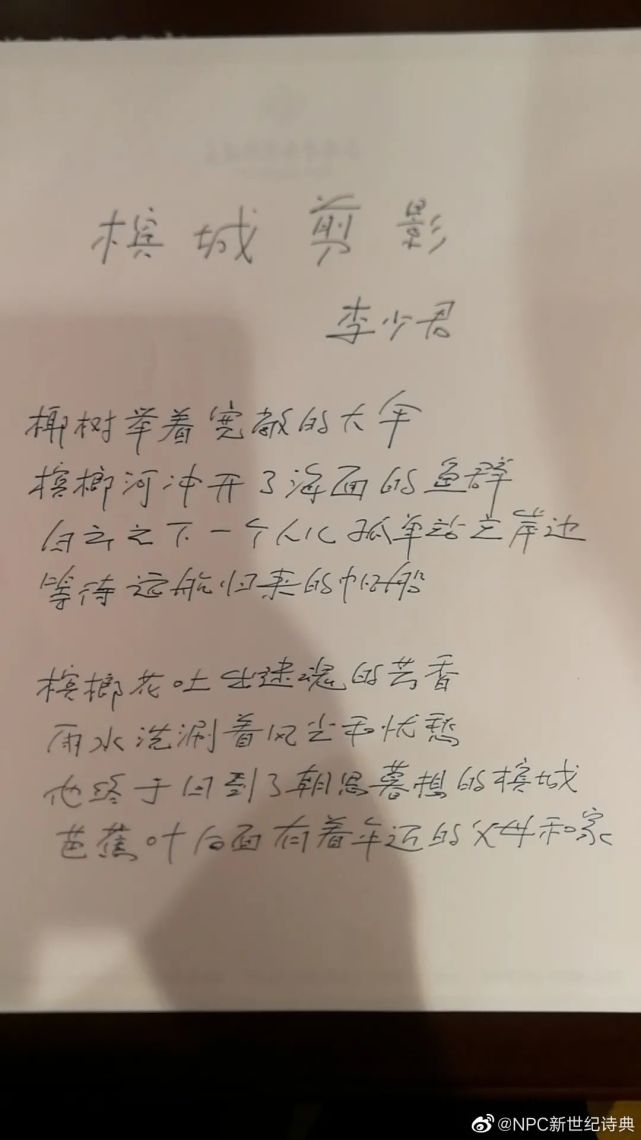 槟城剪影
李少君
椰树举着宽敞的大伞
槟榔河冲开了海面的鱼群
白云之下一个人儿孤单站立岸边
等待远航归来的帆船
槟榔花吐出迷魂的芳香
雨水洗涮着风尘和忧愁
他终于回到了朝思暮想的槟城
芭蕉叶后面有着年迈的父母和家
@NPC新世纪诗典